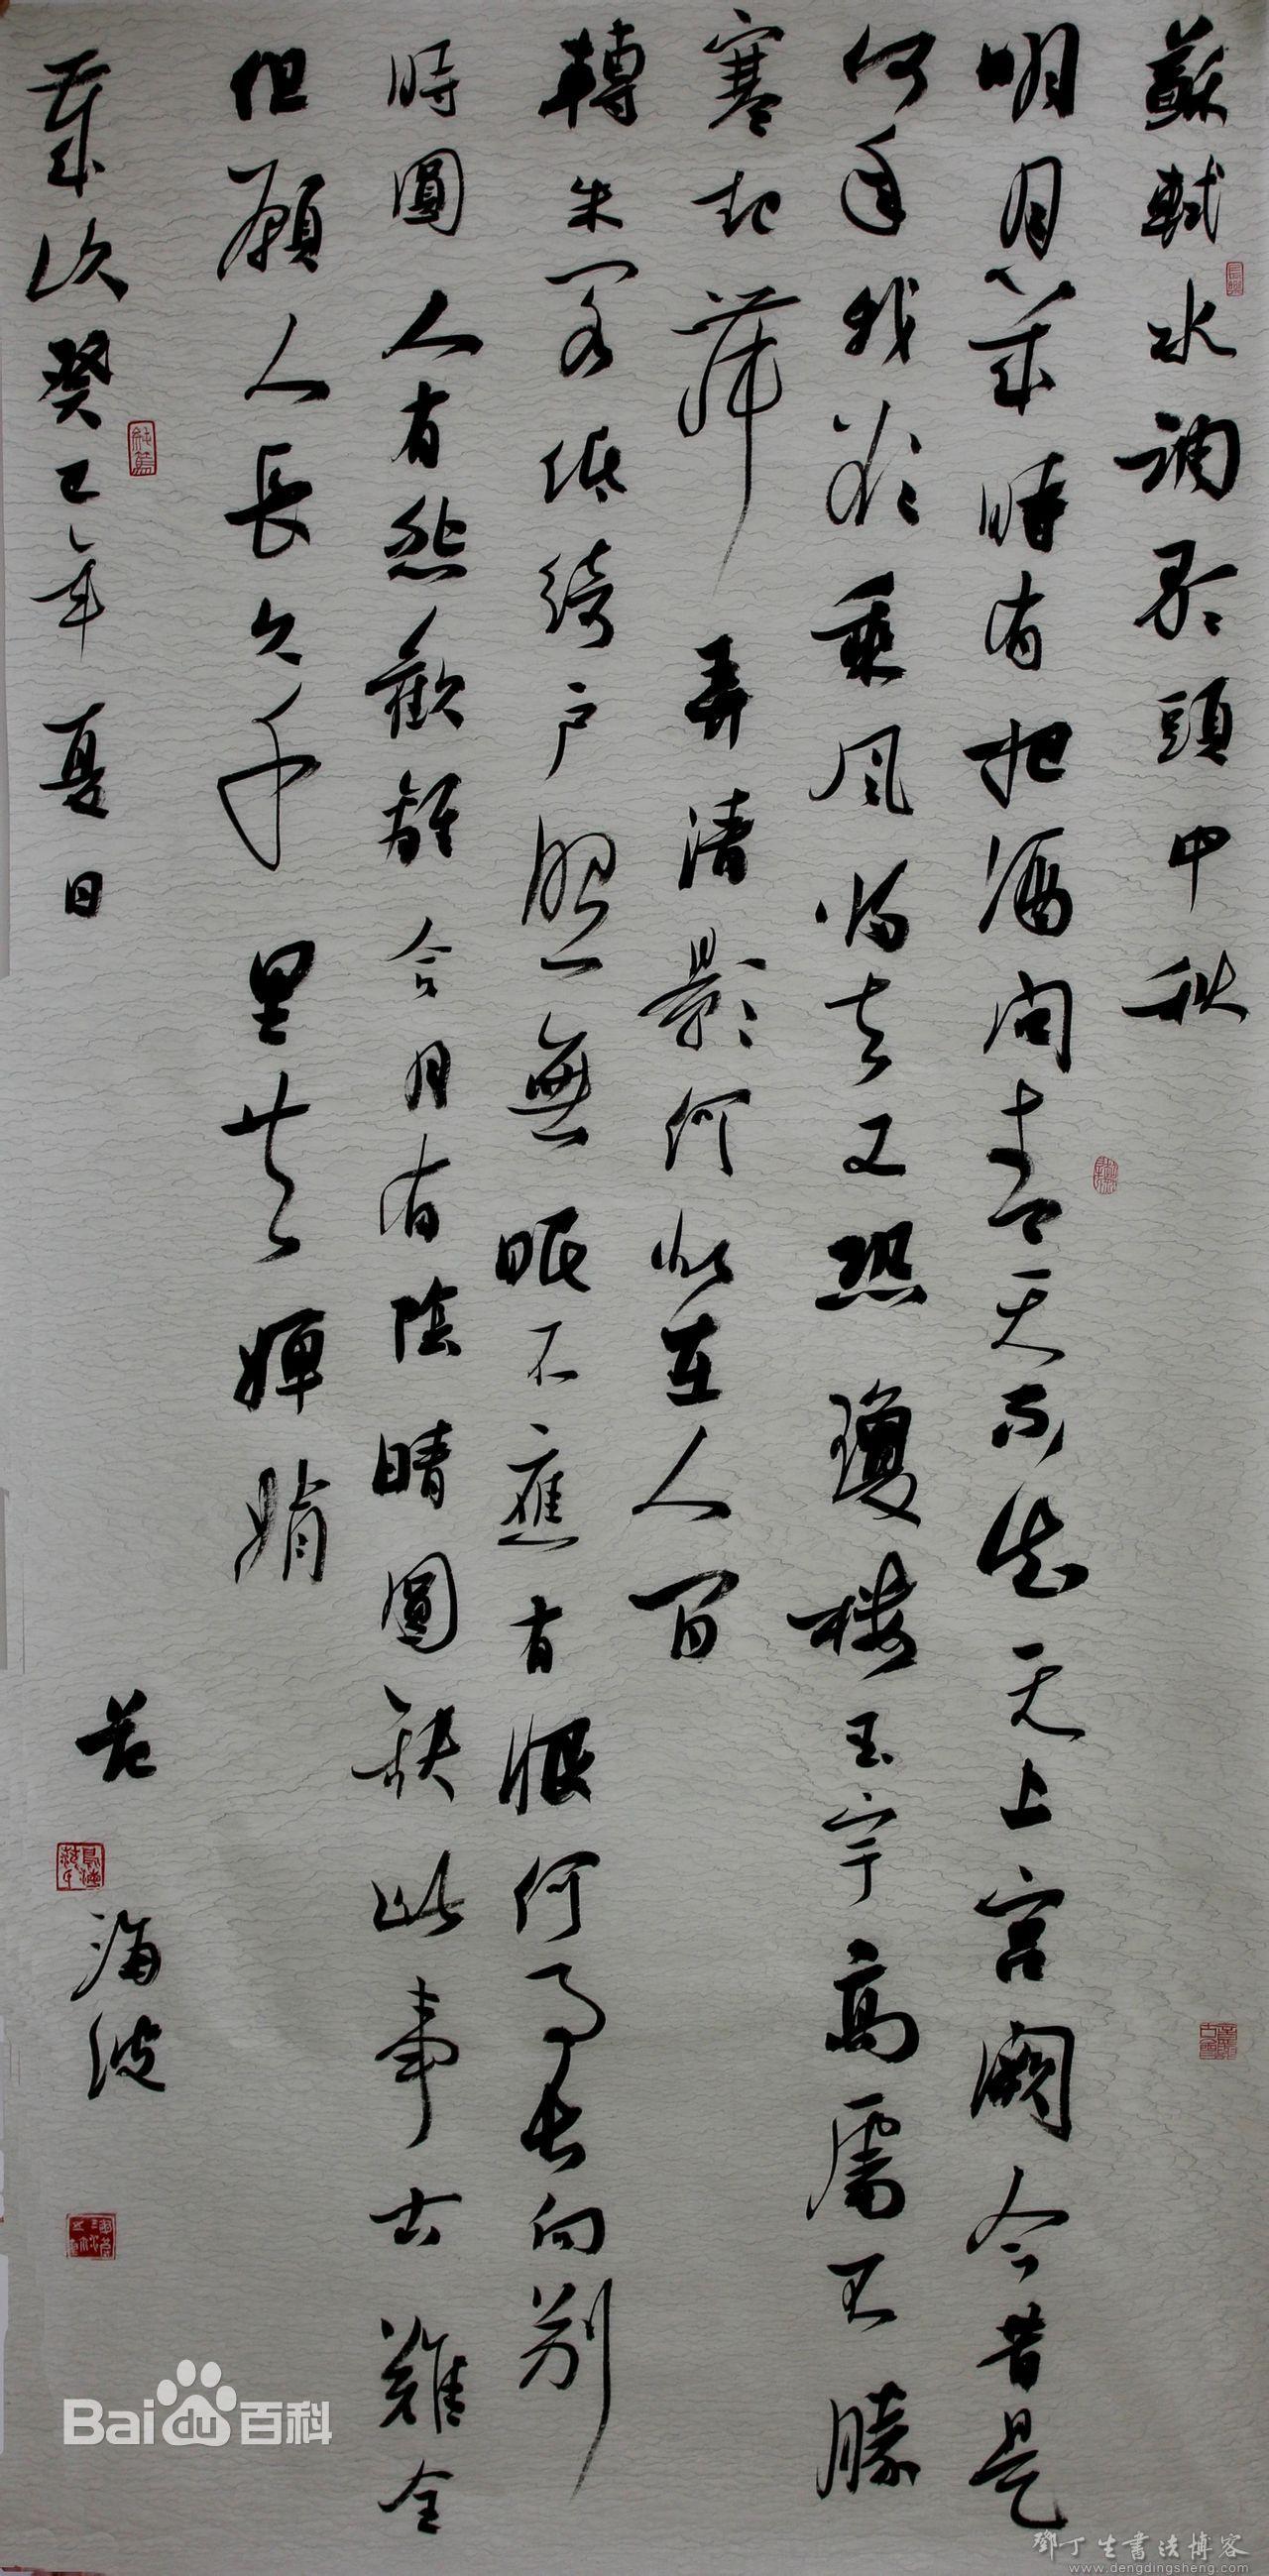 蘇軾水調歌頭中秋
明月幾時有把酒問青天不知天上宮闕今昔是
何年我欲乘風歸去又恐瓊樓玉宇高處不勝
寒起舞弄清影何似在人間
轉朱閣低綺户照無眠不應有恨何事長向別
時圓人有悲歡離合月有陰晴圓缺此事古難全
但願人長久千里共嬋娟
歲次癸巳年夏日
范海波
Bai百科
鄧丁生書法博客
www.dengdingsheng.com